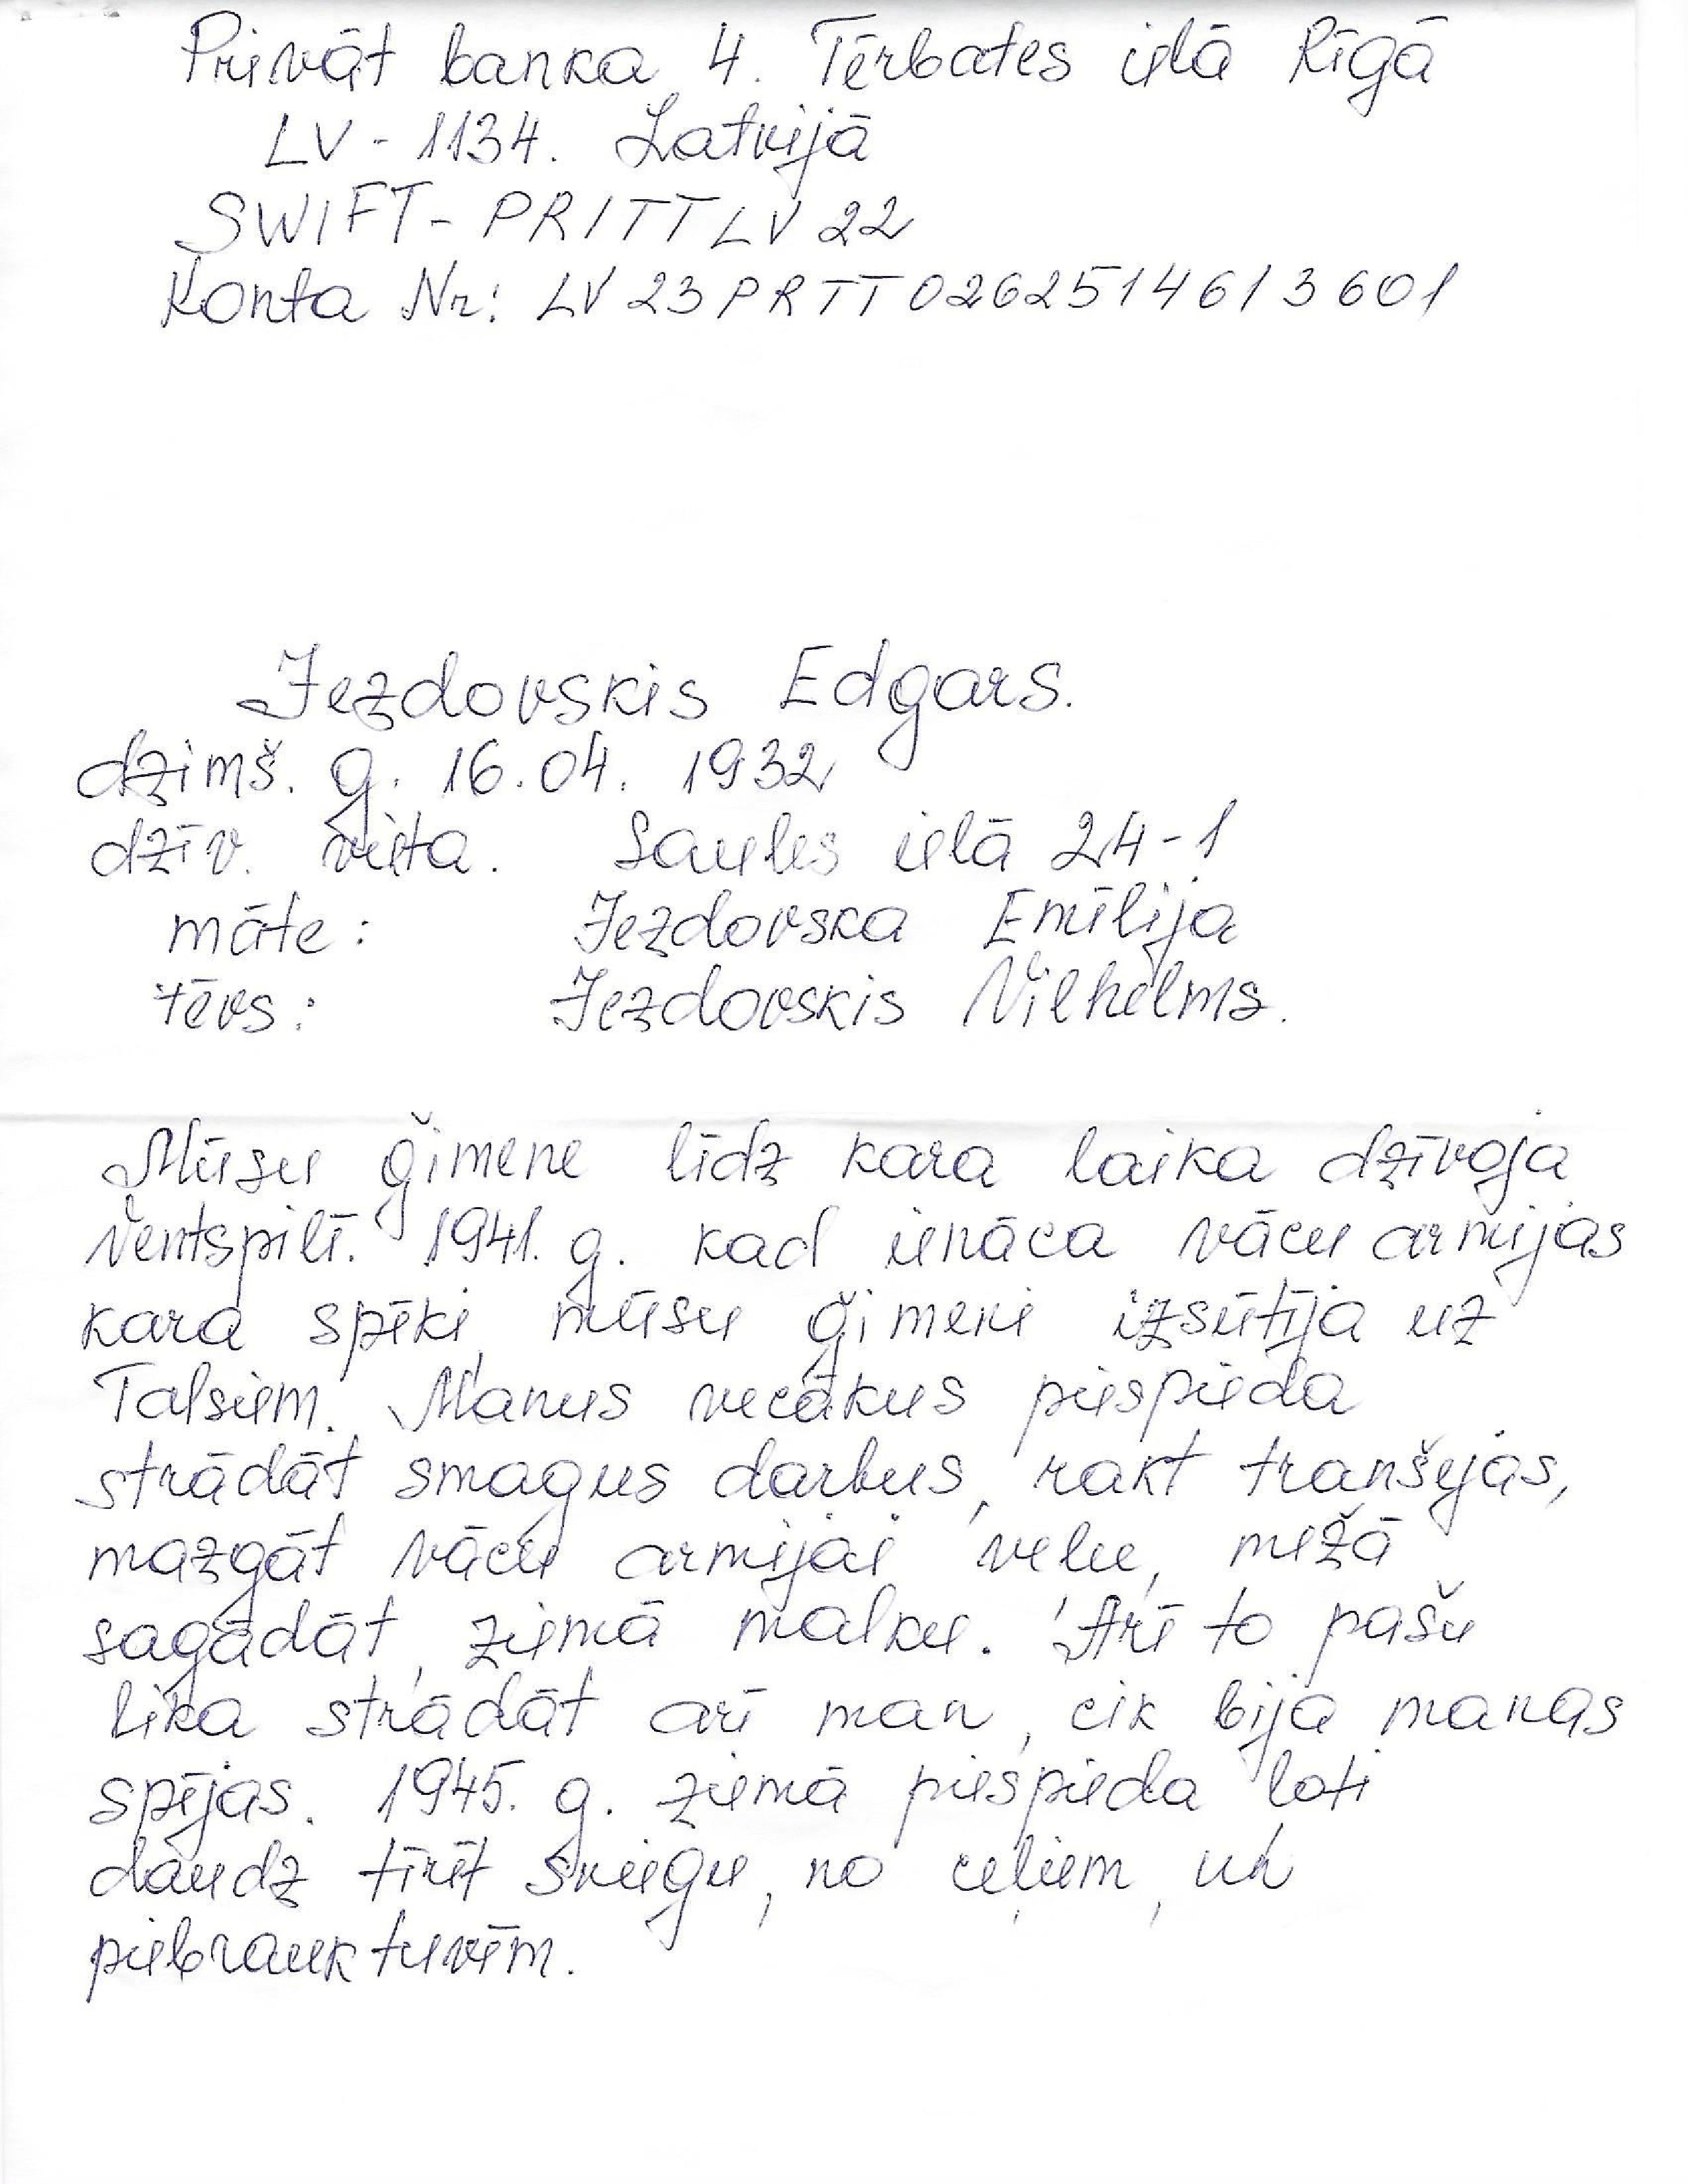 Privāt banka 4. Tērbates ielā Rīgā
LV - 1134. Latvijā
SWIFT - PRITTLV22
Konta Nr: LV23PRTT0262514613601
Jezdovskis Edgars.
dzimš. g. 16.04. 1932
dzīv. vieta. Saules ielā 24-1
māte: Jezdovska Emīlija
tēvs: Jezdovskis Vilhelms.
Mūsu ģimene līdz kara laika dzīvoja
Ventspilī. 1941. g. kad ienāca vācu armijas
kara spēki, mūsu ģimeni izsūtīja uz
Talsiem. Manus vecākus piespieda
strādāt smagus darbus, rakt tranšejas,
mazgāt vācu armijai veļu, mežā
sagādāt, ziemā malku. Arī to pašu
lika strādāt arī man, cik bija manas
spējas. 1945. g. ziemā piespieda loti
daudz tīrīt sniegu, no ceļiem, un
piebrauktuvēm.